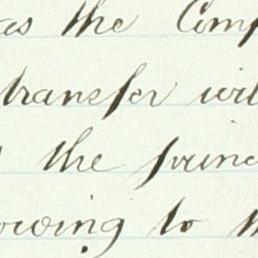 as the Comp
transfer wil
the princ
owing to